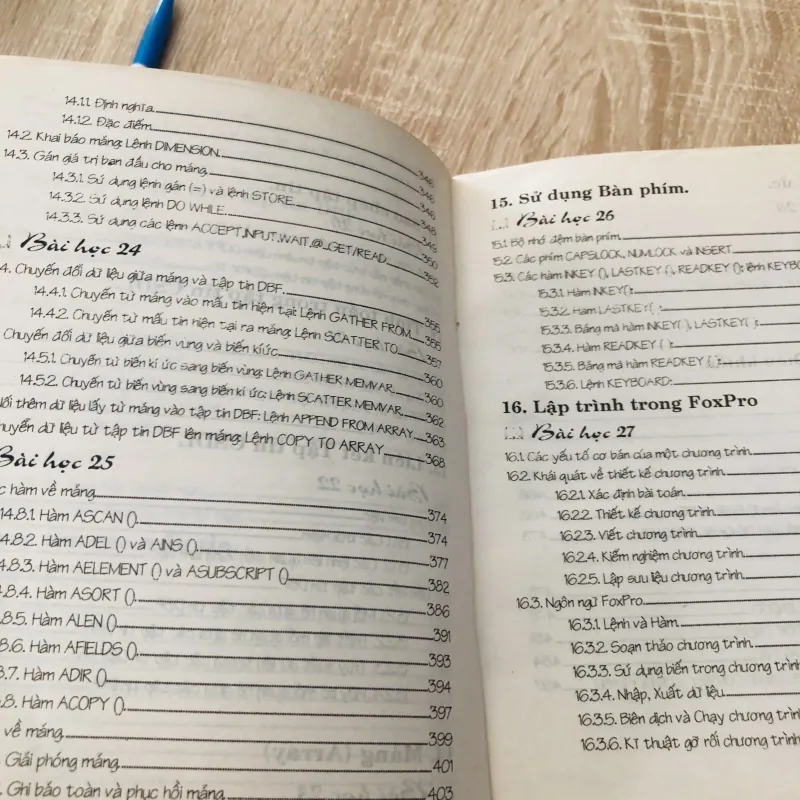 14.1.1. Định nghĩa
14.1.2. Đặc điểm
14.2. Khai báo mảng: Lệnh DIMENSION 346
14.3. Gán giá trị ban đầu cho mảng 346
14.3.1. Sử dụng lệnh gán (=) và lệnh STORE 346
14.3.2. Sử dụng lệnh DO WHILE 348
14.3.3. Sử dụng các lệnh ACCEPT,INPUT,WAIT,@...GET/READ 349
Bài học 24 350
4. Chuyển đổi dữ liệu giữa mảng và tập tin DBF 352
14.4.1. Chuyển từ mảng vào mẩu tin hiện tại: Lệnh GATHER FROM 355
14.4.2. Chuyển từ mẩu tin hiện tại ra mảng: Lệnh SCATTER TO 355
Chuyển đổi dữ liệu giữa biến vùng và biến kí ức 357
14.5.1. Chuyển từ biến kí ức sang biến vùng: Lệnh GATHER MEMVAR 360
14.5.2. Chuyển từ biến vùng sang biến kí ức: Lệnh SCATTER MEMVAR 360
Nối thêm dữ liệu lấy từ mảng vào tập tin DBF: Lệnh APPEND FROM ARRAY 362
Chuyển dữ liệu từ tập tin DBF lên mảng: Lệnh COPY TO ARRAY 363
368
Bài học 25
hàm về mảng 374
14.8.1. Hàm ASCAN () 374
14.8.2. Hàm ADEL () và AINS () 377
14.8.3. Hàm AELEMENT () và ASUBSCRIPT () 382
14.8.4. Hàm ASORT () 386
8.5. Hàm ALEN () 391
8.6. Hàm AFIELDS () 393
8.7. Hàm ADIR () 394
8.8. Hàm ACOPY () 397
về mảng 399
Giải phóng mảng 401
Ghi bảo toàn và phục hồi mảng 403
15. Sử dụng Bàn phím.
Bài học 26
15.1 Bộ nhớ đệm bàn phím
15.2. Các phím CAPSLOCK, NUMLOCK và INSERT
15.3. Các hàm INKEY (), LASTKEY ( ), READKEY (); lệnh KEYBO
15.3.1 Hàm INKEY():
15.3.2. Hàm LASTKEY( ):
15.3.3. Bảng mã hàm INKEY( ), LASTKEY( ):
15.3.4. Hàm READKEY ( ):
15.3.5. Bảng mã hàm READKEY ( ):
15.3.6. Lệnh KEYBOARD:
16. Lập trình trong FoxPro
Bài học 27
16.1 Các yếu tố cơ bản của một chương trình
16.2. Khái quát về thiết kế chương trình
16.2.1. Xác định bài toán
16.2.2. Thiết kế chương trình
16.2.3. Viết chương trình
16.2.4. Kiểm nghiệm chương trình
16.2.5. Lập sưu liệu chương trình
16.3. Ngôn ngữ FoxPro
16.3.1 Lệnh và Hàm
16.3.2. Soạn thảo chương trình
16.3.3. Sử dụng biến trong chương trình
16.3.4. Nhập, Xuất dữ liệu
16.3.5. Biên dịch và Chạy chương trình
16.3.6. Kĩ thuật gỡ rối chương trình